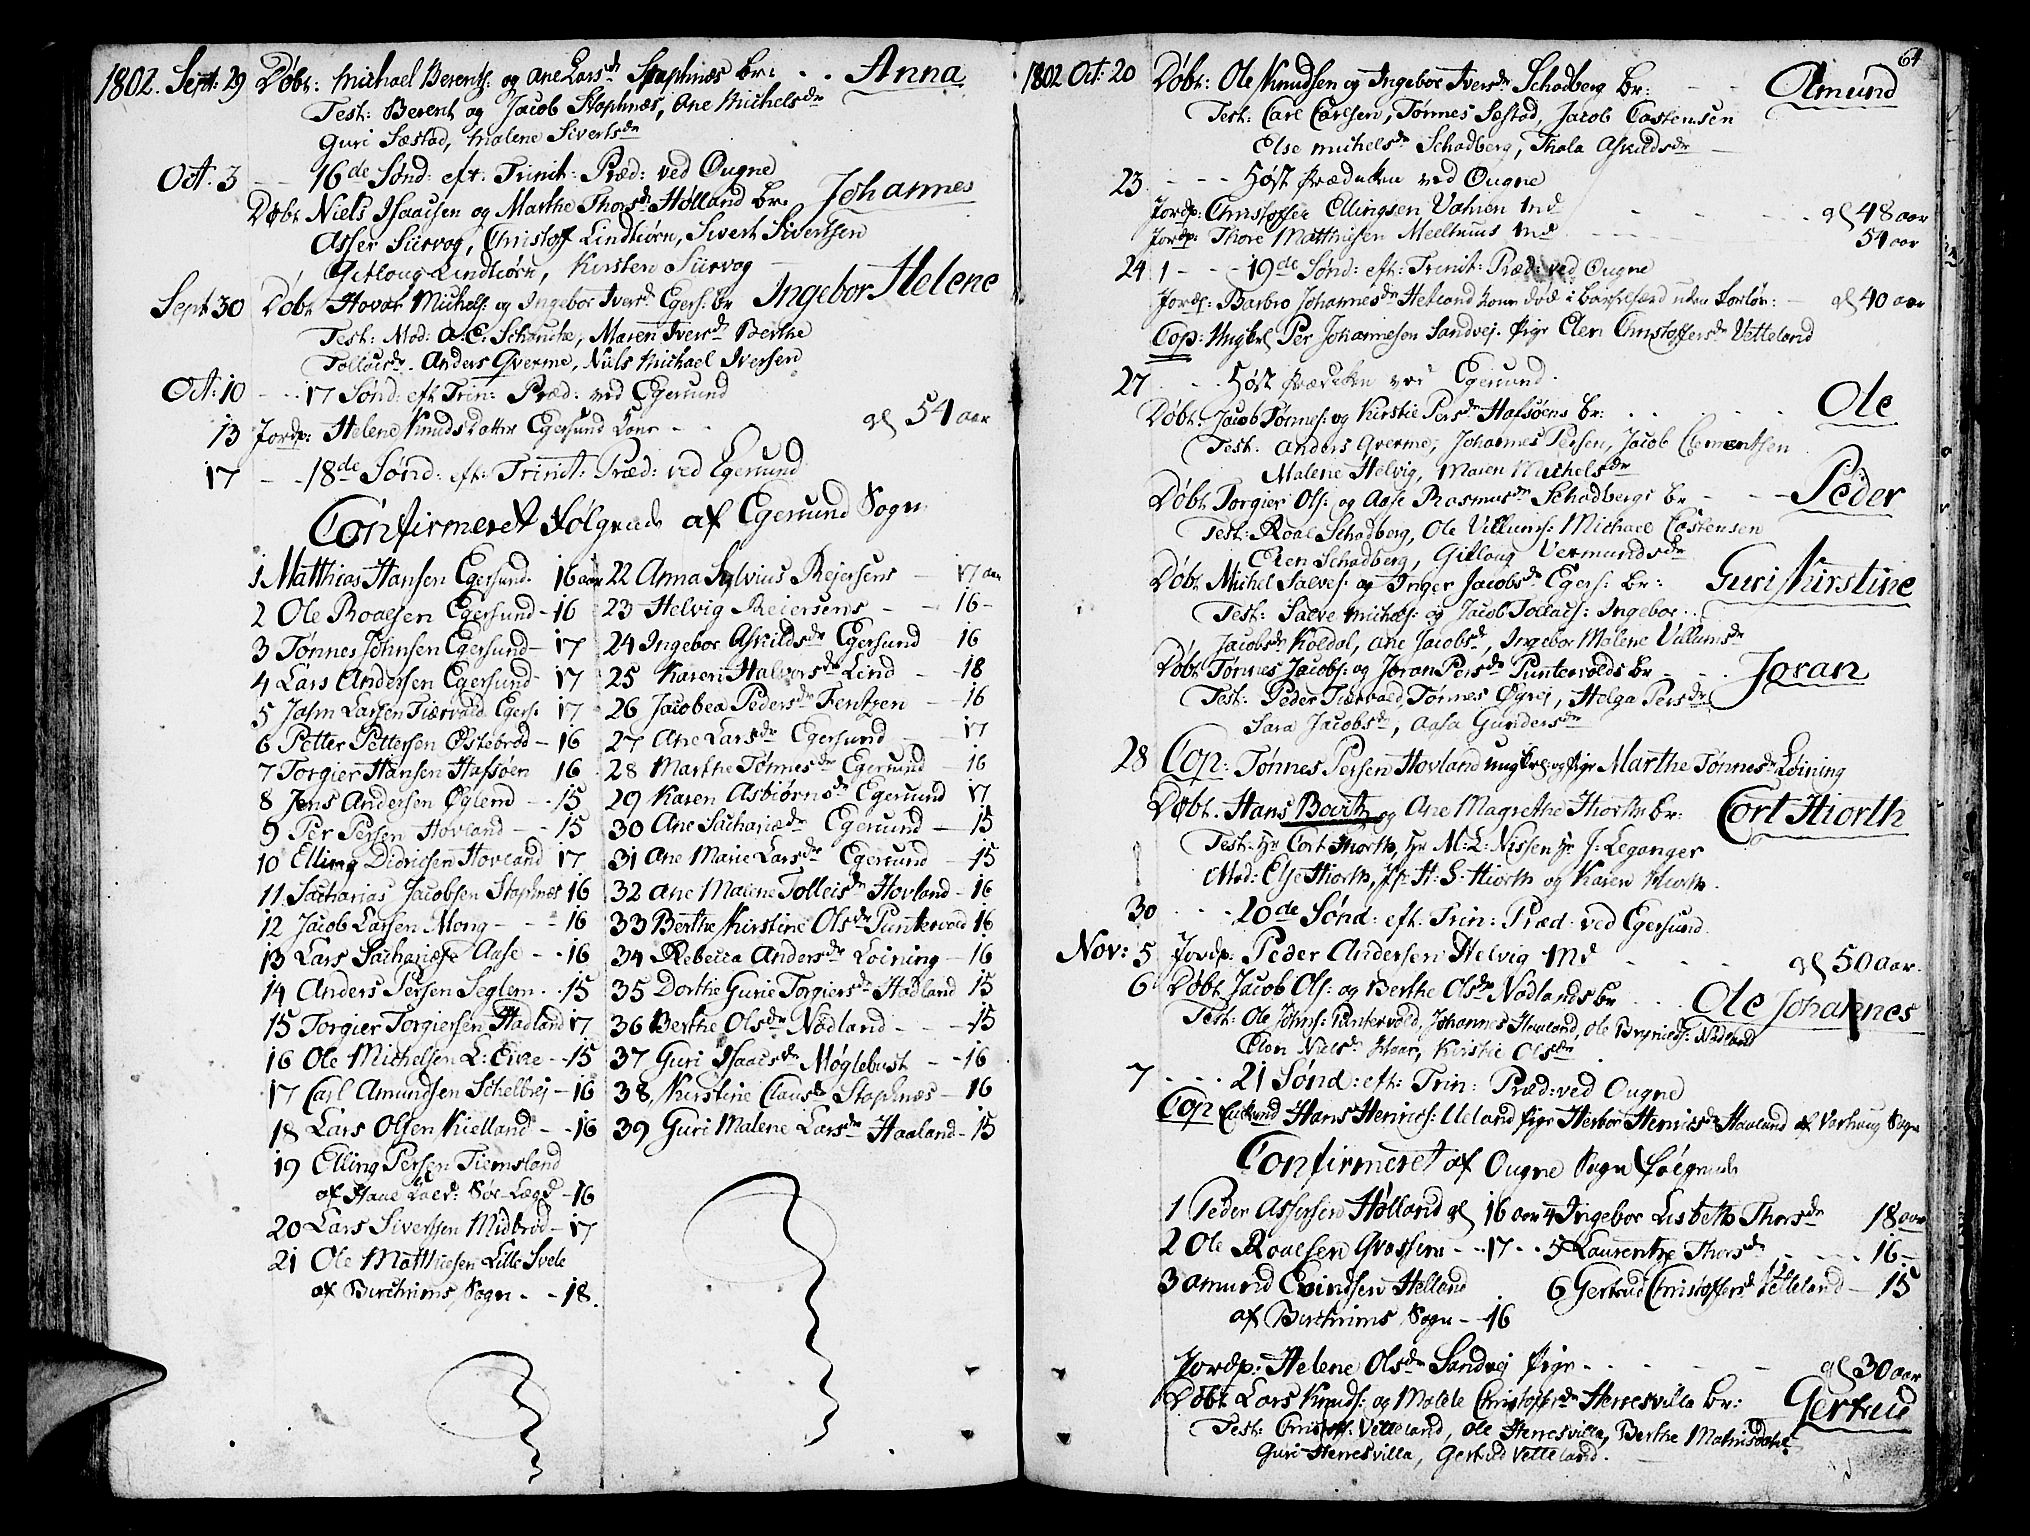 1802. Sept: 29 Døbt: Michael Berents: og Ane Larsdr Staphnæs br: . . Anna
Test: Berent og Jacob Staphnæs, Ane Michelsdr
Guri Sæstad, Malene Sivertsdr
Oct: 3 - - 16de Sønd: eft: Trinit: Præd: ved Ougne
Døbt Niels Isaachsen og Marthe Thorsdr Hølland br: Johannes
Asser Siirvog, Christoff Lindtiørn, Sivert Sivertsen
Gitloug Lindtiørn, Kirsten Siirvog
Sept 30 Døbt Hovar Michels: og Ingebor Iversdr Egers: br Ingebor Helene
Test: Mad: A: C: Schancke, Maren Iversdr Berthe
Tolleisdr. Anders Qverme, Niels Michael Iversen
Oct: 10 - - 17 Sønd: eft Trin: Præd: ved Egersund
13 Jordp: Helene Knudsdatter Egersund Kone - - gl 54 aar
17 - - 18de Sønd: eft: Trinit: Præd: ved Egersund
Confirmeret Følgende af Egersund Sogn
1 Matthias Hansen Egersund. 16 aar
2 Ole Roalsen Egersund - 16
3 Tønnes Johnsen Egersund - 17
4 Lars Andersen Egersund - 17
5 John Larsen Tiærvald Egers: 17
6 Petter Pettersen Østebrød - 16
7 Torgier Hansen Hafsøen 16
8 Jens Andersen Øglend - - 15
9 Per Persen Hovland - - 15
10 Elling Didrichsen Hovland 17
11 Sacharias Jacobsen Staphnæs 16
12 Jacob Larsen Mong - - - 16
13 Lars Sachariæse Aase - - 16
14 Anders Persen Seglem . . 15
15 Torgier Torgiersen Hadland 17
16 Ole Michelsen L: Eive - - 15
17 Carl Amundsen Schelbrej - 16
18 Lars Olsen Kielland - - 16
19 Elling Persen Tiemsland
af Haae Præd: Søe-Lægd - 16
20 Lars Sivertsen Midbrød - 17
21 Ole Matthiesen Lille Svele
af Birchrims Sogn - - 18.
22 Anna Sylvius Reiersens - 17 aar
23 Helvig Reiersens - - 16 -
24 Ingebor Askildsdr Egersund 16
25 Karen Halvorsdr Lind - 18
26 Jacobea Pedersdr Fentzen - 16
27 Ane Larsdr Egersund - - 17
28 Marthe Tønnesdr Egersund - 16
29 Karen Asbiørnsdr Egersund 17
30 Ane Sachariædr Egersund - 15
31 Ane Marie Larsdr Egersund - 15
32 Ane Malene Tolleisdr Hovland - 16
33 Berthe Kirstine Olsdr Puntervold 16
34 Rebecca Andersdr Loining - 16
35 Dorthe Gurie Torgiersdr Hadland 15
36 Berthe Olsdr Nodland - - - 15
37 Guri Isaacsdr Møglebust - - 16
38 Kirstine Clausdr Staphnæs - 16
39 Guri Malene Larsdr Haaland - 15
64
1802 Oct: 20 Døbt: Ole Knudsen og Ingebor Iversdr Schadberg br: - - Amund
Test: Carl Carlsen, Tønnes Sæstad, Jacob Castensen
Else Michelsdr Schadberg, Thala Askildsdr
23 - - - Høst Prædicken ved Ougne
Jordp: Christoffer Ellingsen Md - - - gl 48 aar
Jordp: Thore Matthisen Md - - - 54 aar
24 1 - - - 19de Sønd: eft: Trinit: Præd: ved Ougne
Jordp: Barbro Johannesdr Hetland Kone død i Barselfærd uden Forløs: - gl 40 aar
Cop: Ungkl Per Johannesen Sandvej. Pige Elen Christoffersdr Vetteland
27 . - - Høst Prædicken ved Egersund.
Døbt: Jacob Tønnes: og Kirstie Persdr Hafsøens br: . . . . . Ole
Test: Anders Qverme, Johannes Persen, Jacob Clementsen
Malene Helvig, Maren Michelsdr
Døbt Torgier Ols: og Aase Rasmusdr Schadbergs br - - - Peder
Test: Roal Schadberg, Ole Villums: Michael Castensen
Elen Schadberg, Gitloug Vermundsdr
Døbt Michel Salves: og Inger Jacobsdr Egers: br: Guri Kirstine
Test: Salve Michels: og Jacob Tollaks: Ingebor . .
Jacobsdr Koldal, Ane Jacobsd, Ingebor Malene Villumsdr
Døbt Tønnes Jacobs: og Joran Persdr Puntervolds br - . Joran
Test: Peder Tiærvald, Tønnes Øgrej, Helga Persdr
Sara Jacobsdr, Aasa Gundersdr
28 Cop: Tønnes Persen Hovland ungkrl og pige Marthe Tønnesdr Loining
Døbt. Hans Bovitz og Ane Magrethe Hiorths br: Cort Hiorth
Test: Hr Cort Hiorth, Hr M: L: Nissen Hr J: Leganger
Mad: Else Hiorth, Jfr H: S: Hiorth og Karen Hiorth.
30 . . . - 20de Sønd: eft: Trin: Præd: ved Egersund
Nov: 5 Jordp: Peder Andersen Helvig Md - - - gl 50 aar.
6 Døbt Jacob Ols: og Berthe Olsdr Nodlands br . . . Ole Johannes
Test: Ole Johns: Puntervold, Johannes Hovland, Ole Brynilds: Nodland
Elen Nielsdr Hoar, Kirstie Olsdr
7 . . . 21 Sønd: eft: Trin: Præd: ved Ougne
Cop Hans Henrichs: Ueland pige Herbor Henricsdr Haaland af Varhaug Sogn
Confirmeret af Ougne Sogn følgende
1 Peder Assersen Hølland gl 16 aar
2 Ole Roalsen Grossem - - 17 - -
3 Amund Evindsen Helland
af Birchrims Sogn - 16
4 Ingebor Lisbeth Thorsdr 18 aar
5 Laurentze Thorsdr - - - - 16 -
6 Gertrud Christoffersd Vetteland - 15
Jordp: Helene Olsdr Sandvej Pige - - - - gl 30 aar
Døbt Lars Knuds: og Malele Christoffersdr Herresvilla br: Gertrud
Test: Christoff: Vetteland, Ole Herresvilla, Berthe
Guri Herresvilla, Gertrud Vetteland.